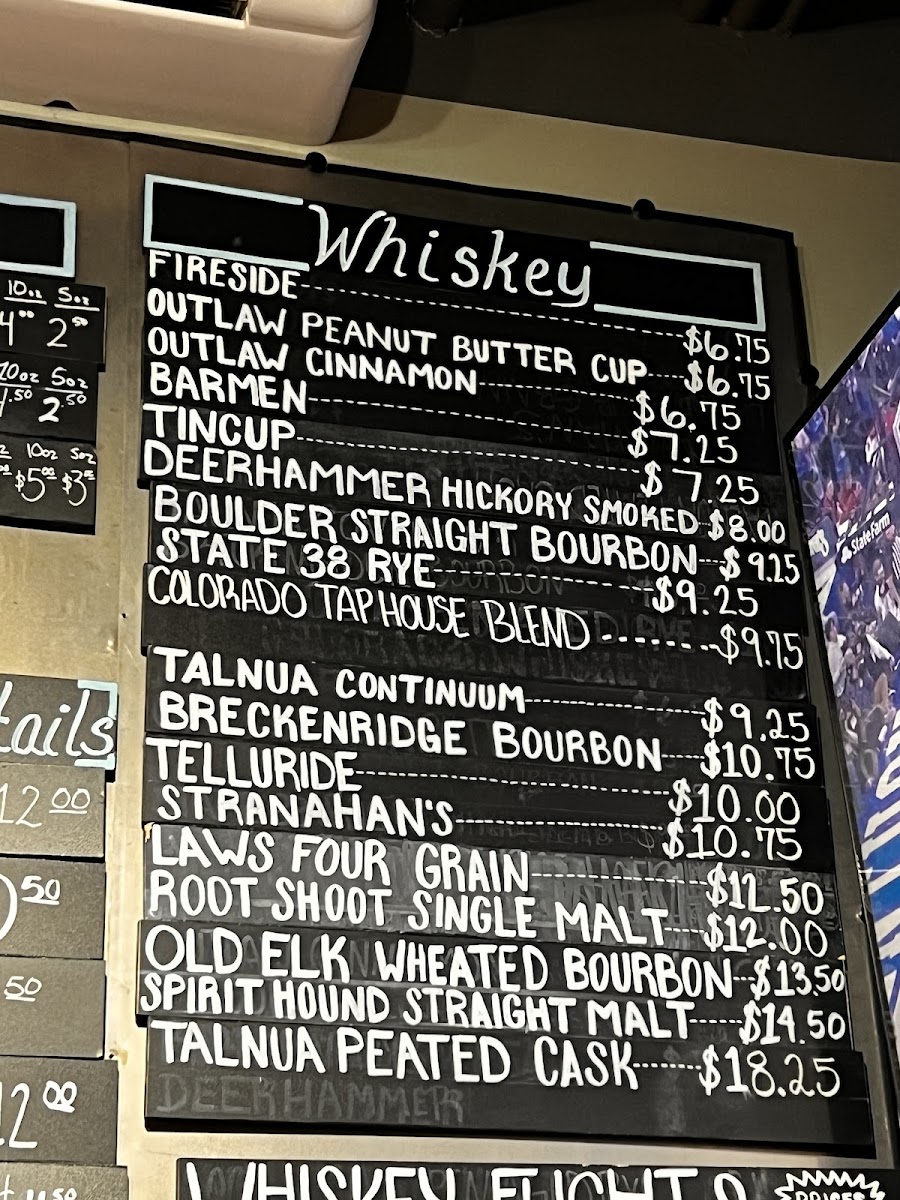 Whiskey
FIRESIDE $6.75
OUTLAW PEANUT BUTTER CUP $6.75
OUTLAW CINNAMON $6.75
BARMEN $7.25
TINCUP $7.25
DEERHAMMER HICKORY SMOKED $8.00
BOULDER STRAIGHT BOURBON $9.25
STATE 38 RYE $9.25
COLORADO TAPHOUSE BLEND $9.75
TALNUA CONTINUUM $9.25
BRECKENRIDGE BOURBON $10.75
TELLURIDE $10.00
STRANAHAN'S $10.75
LAWS FOUR GRAIN $12.50
ROOT SHOOT SINGLE MALT $12.00
OLD ELK WHEATED BOURBON $13.50
SPIRIT HOUND STRAIGHT MALT $14.50
TALNUA PEATED CASK $18.25
DEERHAMMER
WHISKEY FLIGHTS
10oz 5oz
4.00 2.50
10oz 5oz
4.50 2.50
10oz 5oz
$5.00
tails
12 00
50
50
12 00
State Farm